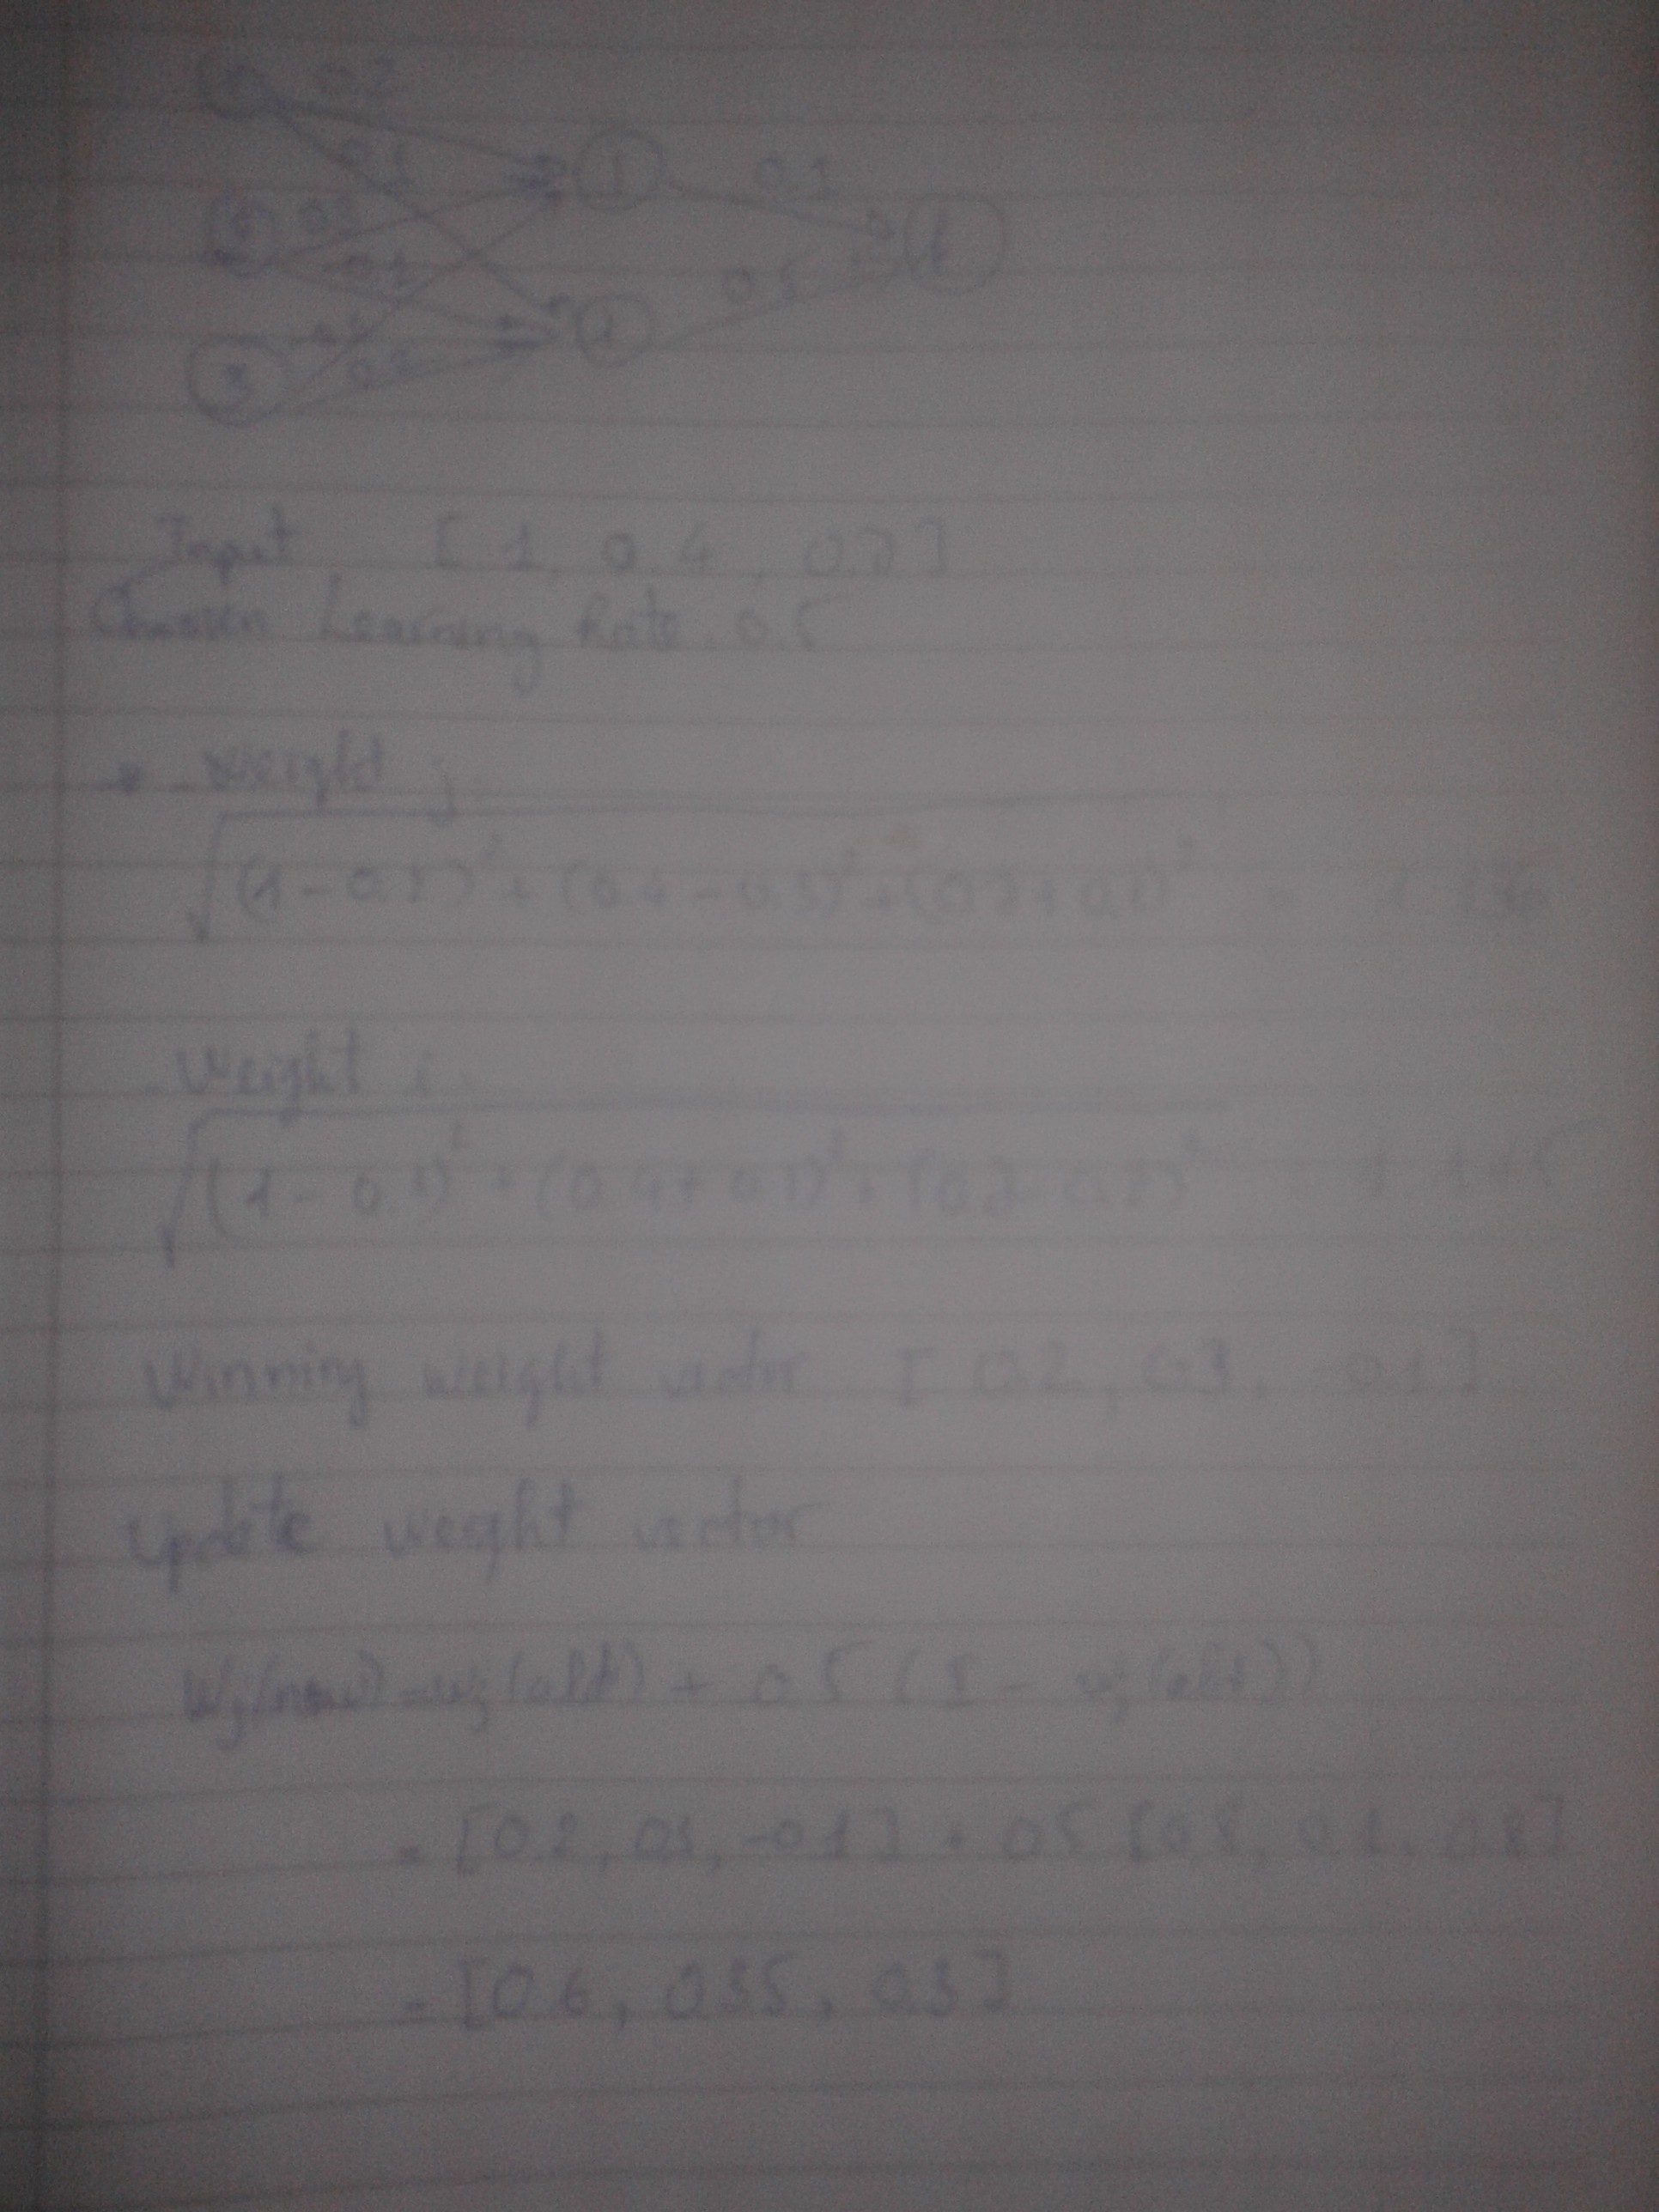 0.2
0.1
1
0.1
0.3
-0.1
2
0.5
3
0.2
Input [ 1, 0.4, 0.7 ]
Chosen Learning Rate 0.5
- Weight j
√(1 - 0.2)² + (0.4 - 0.3)² + (0.7 + 0.1)² =
- Weight i
√(1 - 0.1)² + (0.4 + 0.1)² + (0.7 - 0.2)²
Winning weight vector [ 0.2, 0.3, -0.1 ]
Update weight vector
Wj(new) = wj(old) + 0.5 ( I - wj(old))
= [0.2, 0.3, -0.1] + 0.5 [0.8, 0.1, 0.8]
= [0.6, 0.35, 0.3]